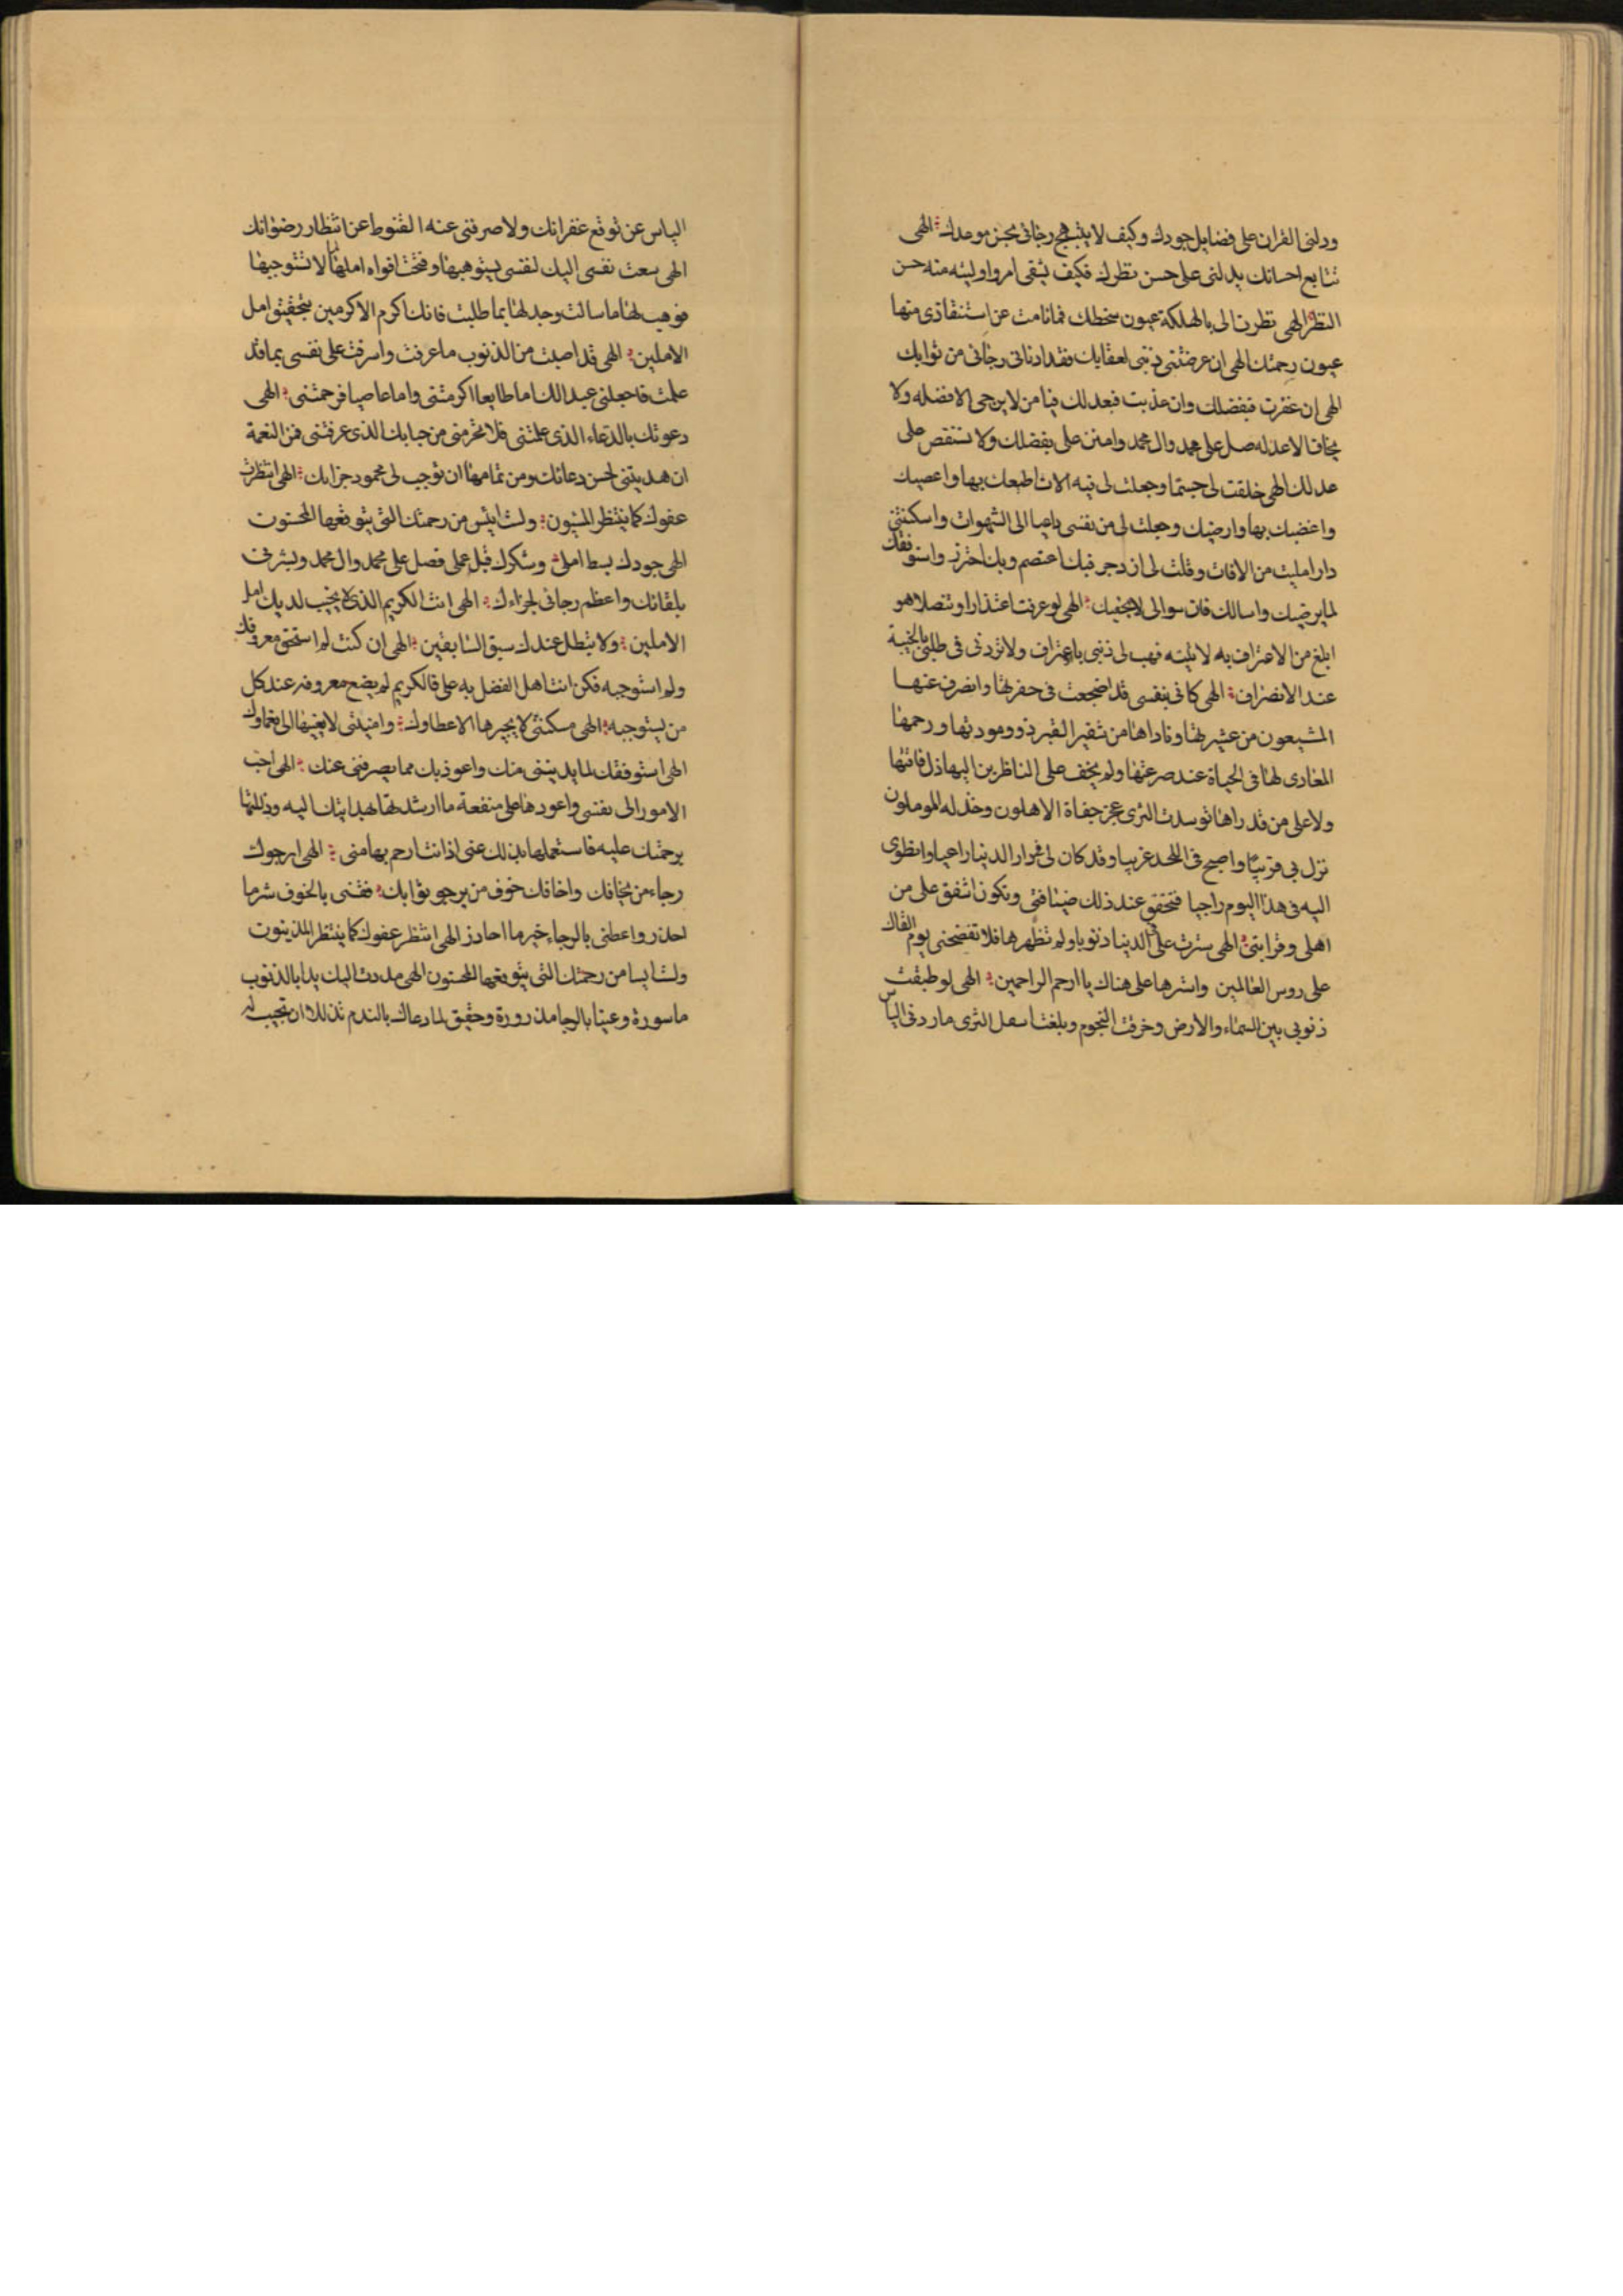 ودلنى القران على فضايل جودك وكيف لا يبتهج رجائى بحسن موعدك الهى
تتابع احسانك يدلنى على حسن نظرك فكيف يشقى امرؤ اوليته منه حسن
النظر الهى نظرت الى بالهلكة عيون سخطك فما نامت عن استنقاذى منها
عيون رحمتك الهى ان عرضتنى ذنبى لعقابك فقد ادنانى رجائى من ثوابك
الهى ان غفرت فبفضلك وان عذبت فبعدلك فيا من لا يرجى الا فضله ولا
يخاف الا عدله صل على محمد وال محمد وامنن على بفضلك ولا تستقص على
عدلك الهى خلقت لى جسما وجعلت لى فيه الات اطيعك بها واعصيك
واغضبك بها وارضيك وجعلت لى من نفسى داعيا الى الشهوات واسكنتنى
دارا مليت من الافات وقلت لى ازدجر فبك اعتصم وبك احترز واستوفقك
لما يرضيك واسالك فان سوالى لا يحفيك الهى لو عرفت اعتذارا وتنصلا هو
ابلغ من الاعتراف به لاتيته فهب لى ذنبى باعتراف ولا تردنى فى طلبتى بالخيبة
عند الانصراف الهى كانى بنفسى قد اضجعت فى حفرتها وانصرف عنها
المشيعون من عشيرتها وناداها من شفير القبر ذوو مودتها ورحمها
المعادى لها فى الحياة عند صرعتها ولم يخف على الناظرين اليها ذل فاقتها
ولا على من قد راها توسدت الثرى عجز جفاة الاهلون وخذله المومـلون
نزل بى قريبا واصبح فى اللحد غريبا وقد كان لى فى دار الدنيا راعيا وانظوى
اليه فى هذا اليوم راجيا فتحقق عند ذلك ضيافتى وتكون اشفق على من
اهلى وقرابتى الهى سترت على فى الدنيا ذنوبا ولم تظهرها فلا تفضحنى يوم القاك
على روس العالمين واسترها على هناك يا ارحم الراحمين الهى لو طبقت
ذنوبى بين السماء والارض وخرقت النجوم وبلغت اسفل الثرى ما ردنى الياس
الياس عن توقع غفرانك ولا صرفنى عنه القنوط عن انتظار رضوانك
الهى سعت نفسى اليك لنفسى يستوهبها وفتحت افواه املها لما لا تستوجبها
فوهب لها ما سالت وجد لها بما طلبت فانك اكرم الاكرمين بتحقيق امل
الاملين الهى قد اصبت من الذنوب ما عرفت واسرفت على نفسى بما قد
علمت فاجعلنى عبدا لك اما طايعا اكرمتنى واما عاصيا فرحمتنى الهى
دعوتك بالدعاء الذى علمتنى فلا تحرمنى من حبابك الذى عرفتنى فمن النعمة
ان هديتنى لحسن دعائك ومن تمامها ان توجب لى محمود جزايك الهى انتظرت
عفوك كما ينتظر المسيئون ولست ايئس من رحمتك التى يتوقعها المحسنون
الهى جودك بسط املى وشكرك قبل عملى فصل على محمد وال محمد وبشرنى
بلقائك واعظم رجائى لجزاءك الهى انت الكريم الذى لا يخيب لديك امل
الاملين ولا يبطل عندك سبق السابقين الهى ان كنت لم استحق معروفك
ولم استوجبه فكن انت اهل الفضل به على فالكريم لم يضع معروفه عند كل
من يستوجبه الهى مسكنتى لا يجبرها الا عطاوك وامنيتى لا يغنيها الا نعماوك
الهى استوفقك لما يدنينى منك واعوذ بك مما يصرفنى عنك الهى احب
الامور الى نفسى واعودها على منفعة ما ارشدتها بهدايتك اليه وذللتها
برحمتك عليه فاستعملها بذلك عنى اذ انت ارحم بها منى الهى ارجوك
رجاء من يخافك واخافك خوف من يرجو ثوابك فقنى بالخوف شر ما
احذر واعطنى بالرجاء خير ما احاذر الهى انتظر عفوك كما ينتظر المذنبون
ولست ايسا من رحمتك التى يتوقعها المحسنون الهى مددت اليك يدا بالذنوب
ماسورة وعينا بالرجا مذرورة وحقيق لما دعاك بالندم تذللا ان تجيب له